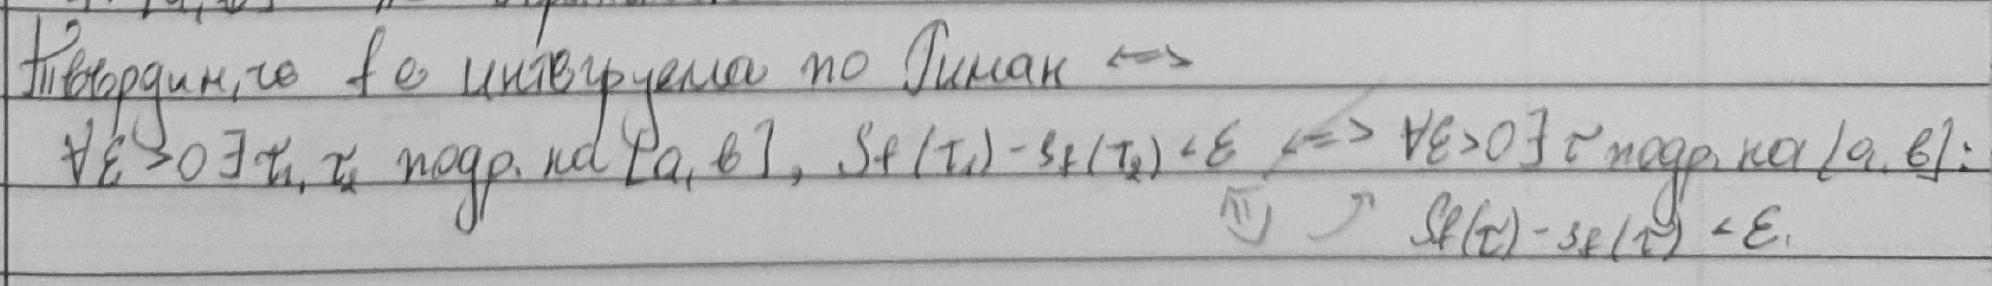 Твърдим, че f е интегруема по Риман <=>
∀ε>0 ∃ τ₁, τ₂ подр. на [a, b], Sf(τ₁) - sf(τ₂) < ε <=> ∀ε>0 ∃ τ подр. на [a, b]:
Sf(τ) - sf(τ) < ε.